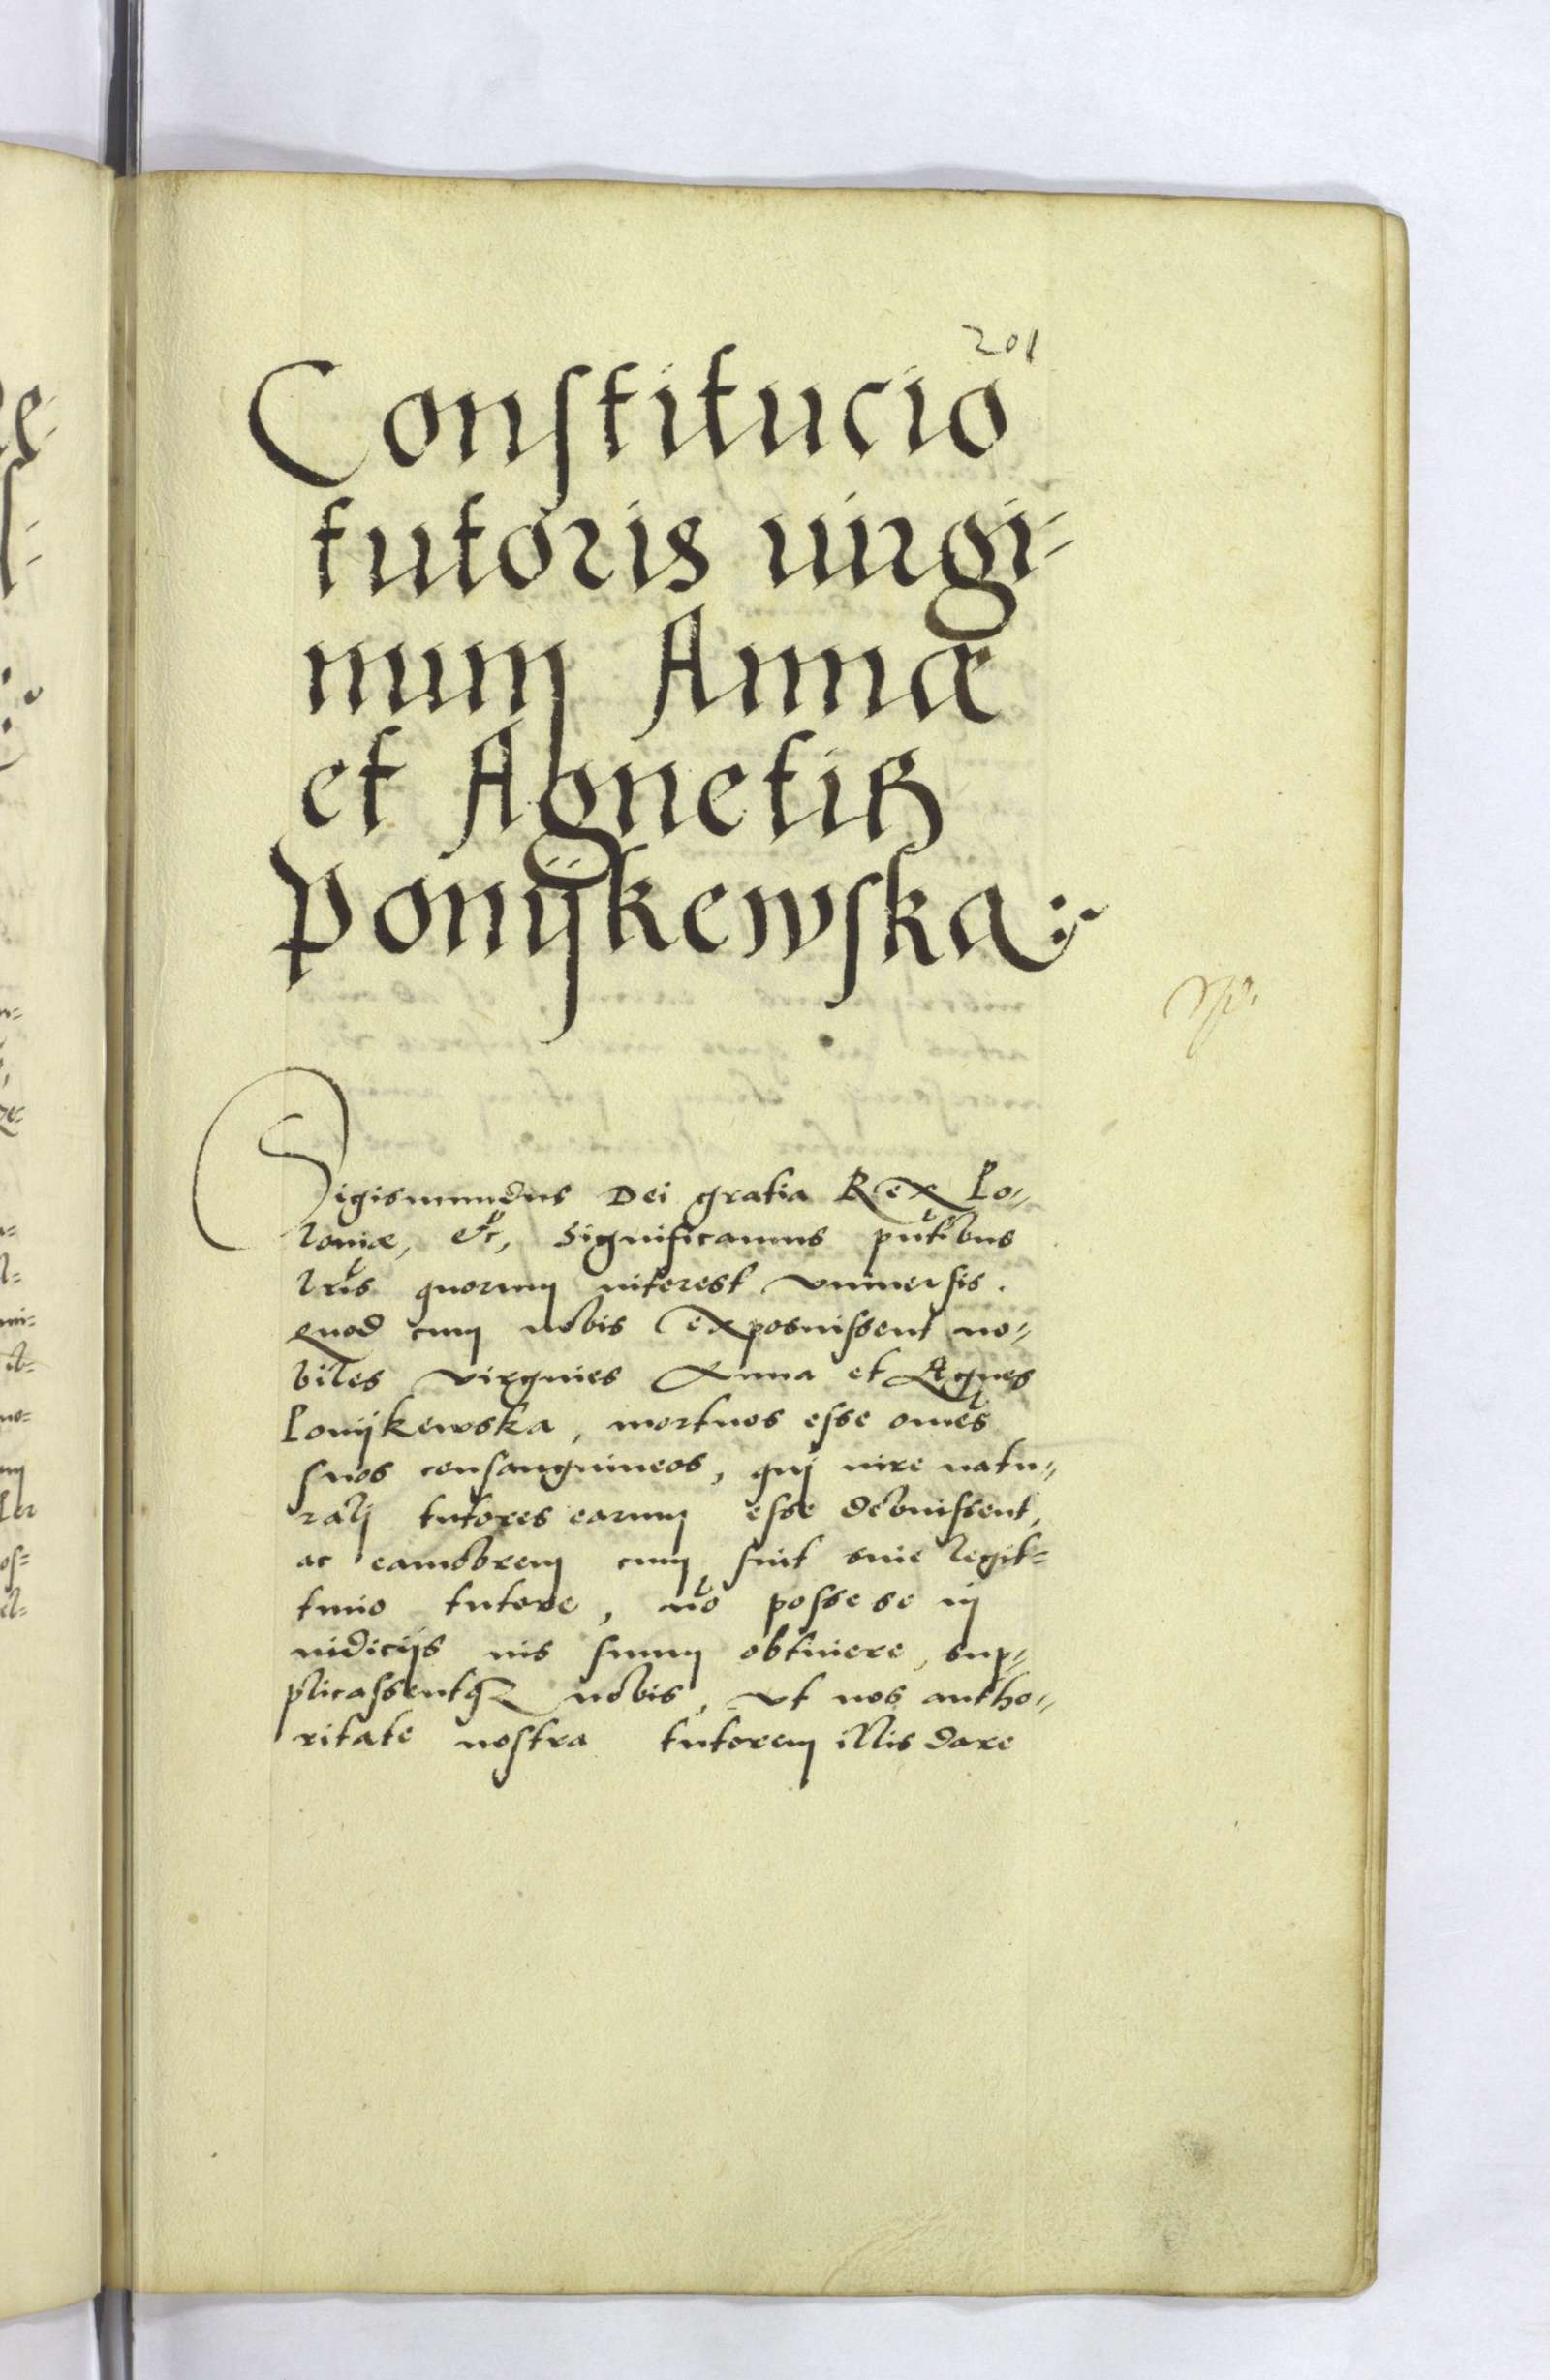 201
Constitucio
tutoris uirgi-
num Annæ
et Agnetiß
Ponÿkewska
Sigismundus Dei gratia Rex Po-
loniæ, etc, Significamus pntibus
lris quorum interest vniuersis.
Quod cum nobis exposuissent no-
biles virgines Anna et Agnes
Ponÿkewska, mortuos esse omes
suos consanguineos, qui iure natu-
rali tutores earum esse debuissent,
ac eamobrem cum sint sine legit-
timo tutore, no posse se in
iudicijs ius suum obtinere, sup-
plicassentqz nobis, vt nos autho-
ritate nostra tutorem illis dare